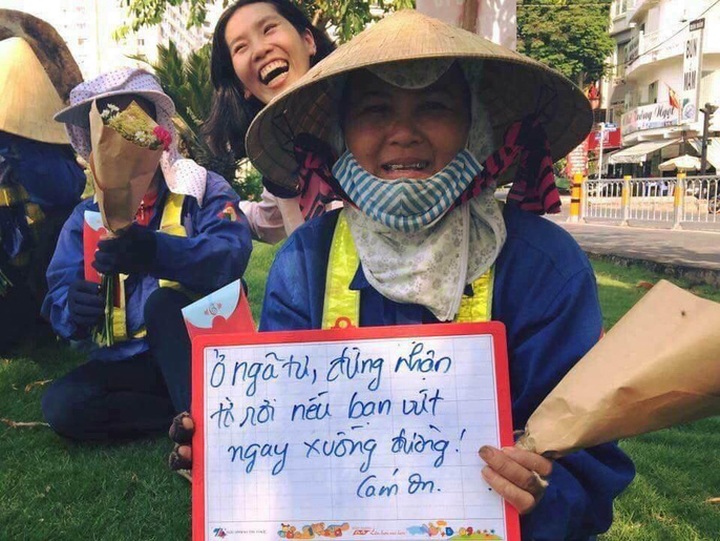 Ở ngã tư, đừng nhận
tờ rơi nếu bạn vứt
ngay xuống đường!
Cám ơn.
BÚN
NẮM